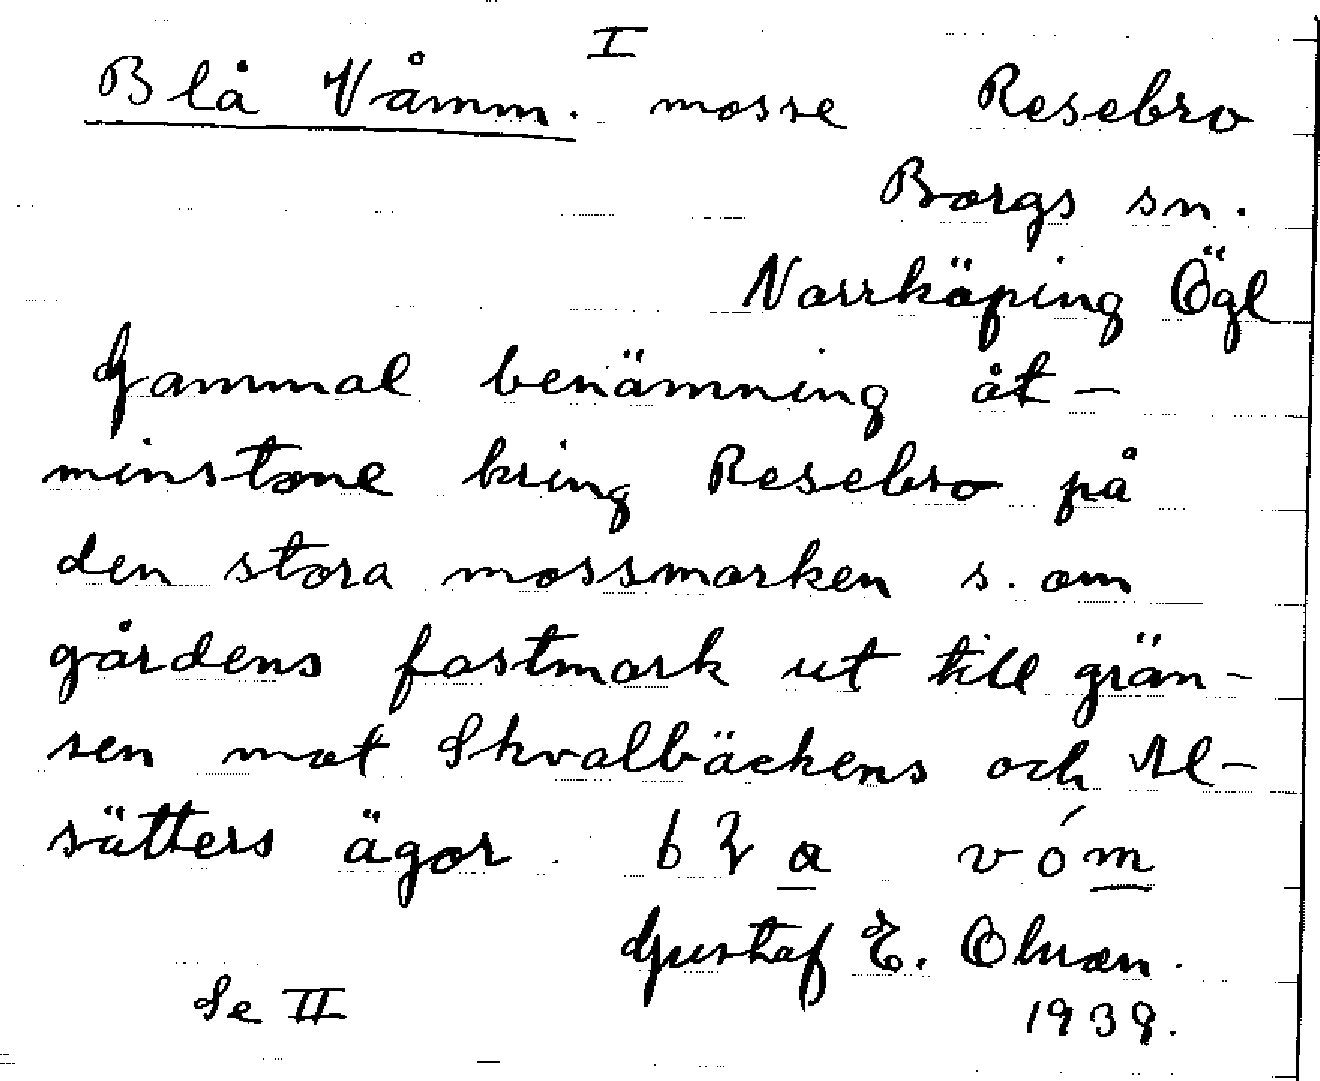 I
Blå Våmm. mosse Resebro
Borgs sn.
Norrköping Ögl
Gammal benämning åt-
minstone kring Resebro på
den stora mossmarken s. om
gårdens fastmark ut till grän-
sen mot Skvalbäckens och Al-
sätters ägor. vóm
Gustaf E. Olsson.
Se II 1939.